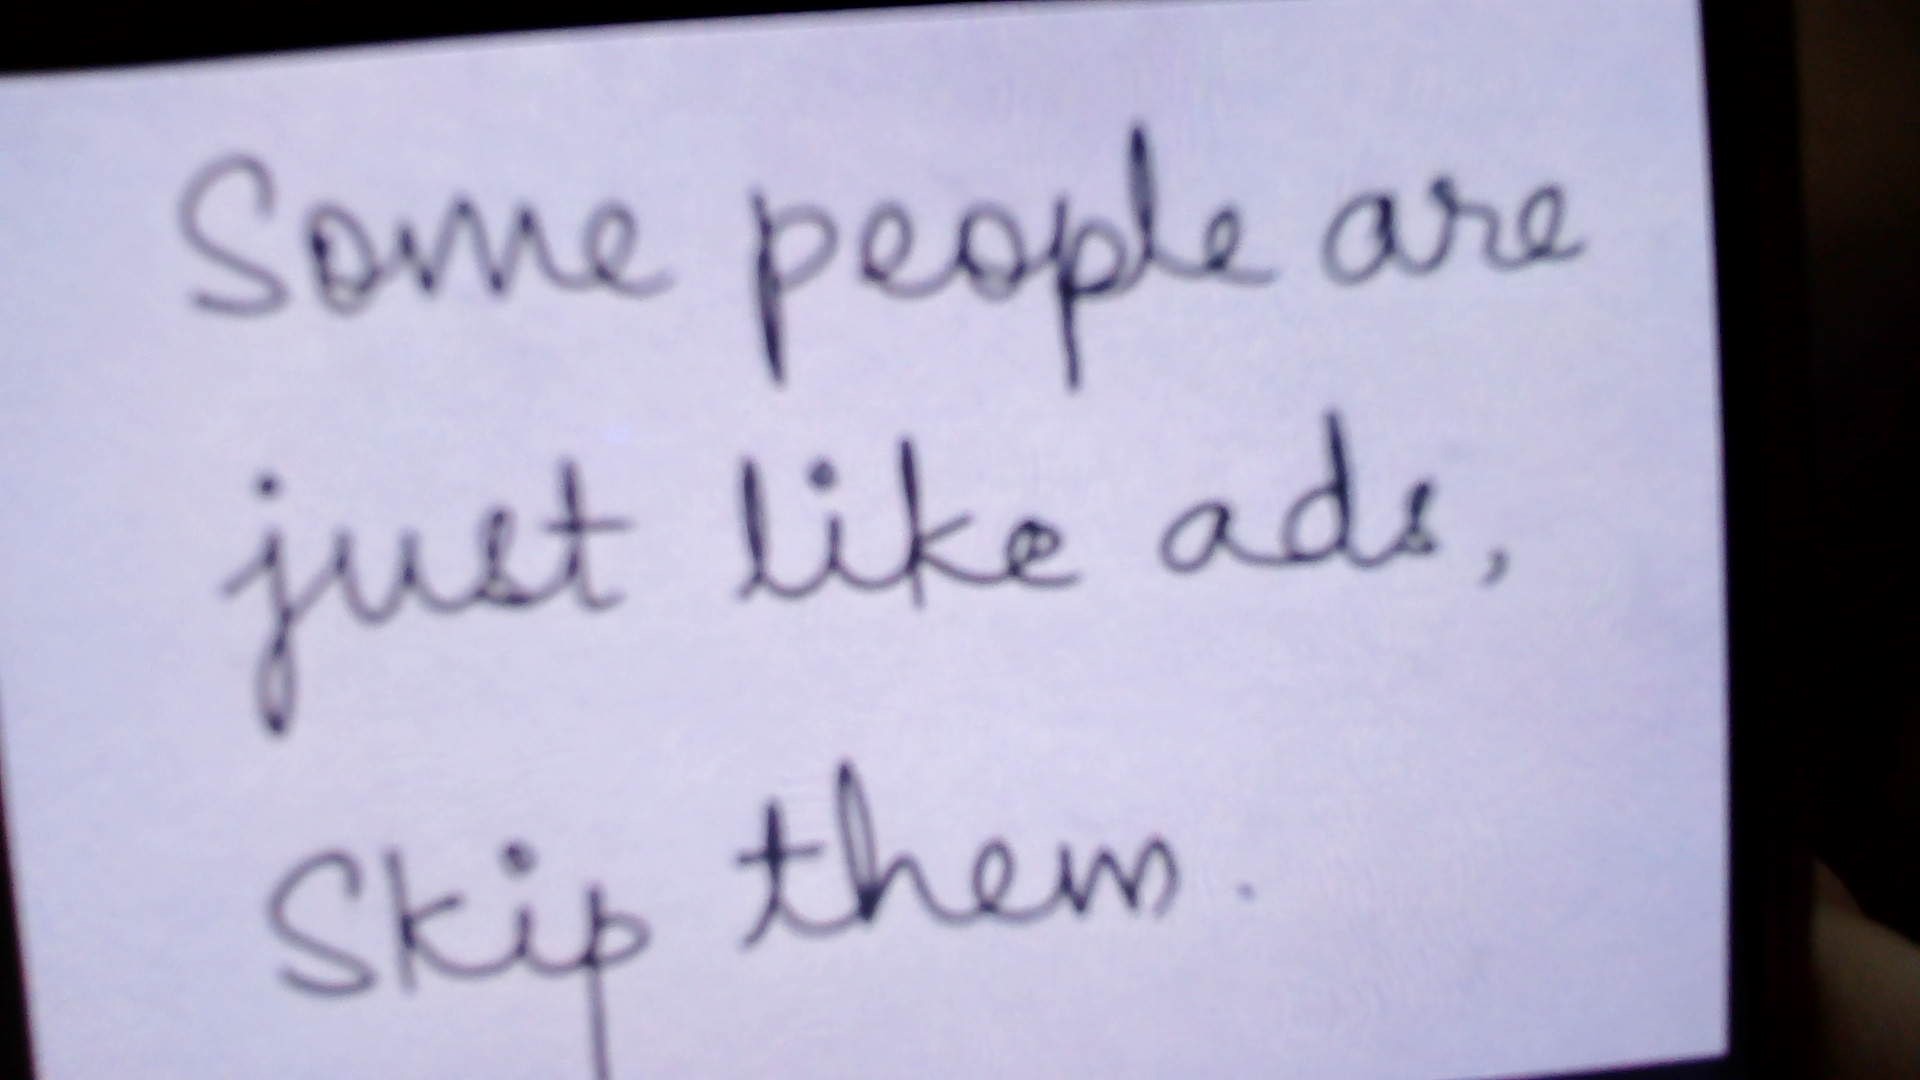 Some people are
just like ads,
Skip them.